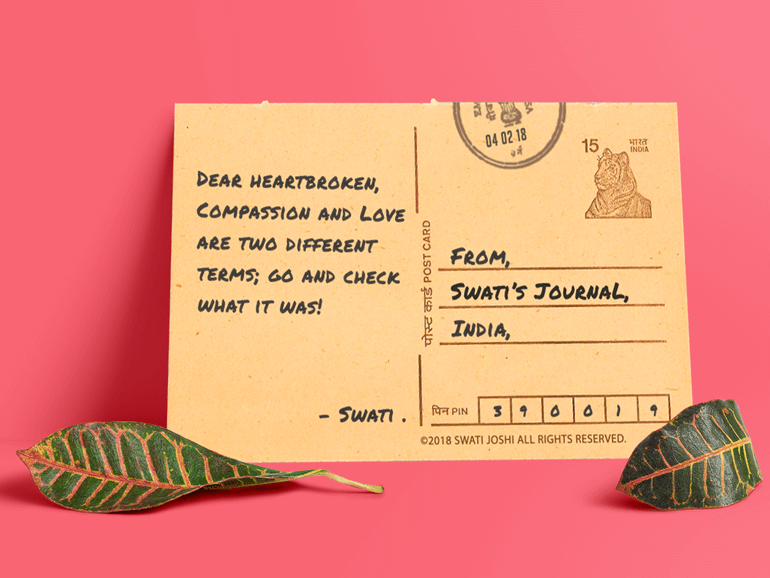 DEAR HEARTBROKEN,
COMPASSION AND LOVE
ARE TWO DIFFERENT
TERMS; GO AND CHECK
WHAT IT WAS!
- SWATI .
पोस्ट कार्ड POST CARD
04 02 18
15 भारत
INDIA
FROM,
SWATI'S JOURNAL,
INDIA,
पिन PIN 3 9 0 0 1 9
©2018 SWATI JOSHI ALL RIGHTS RESERVED.